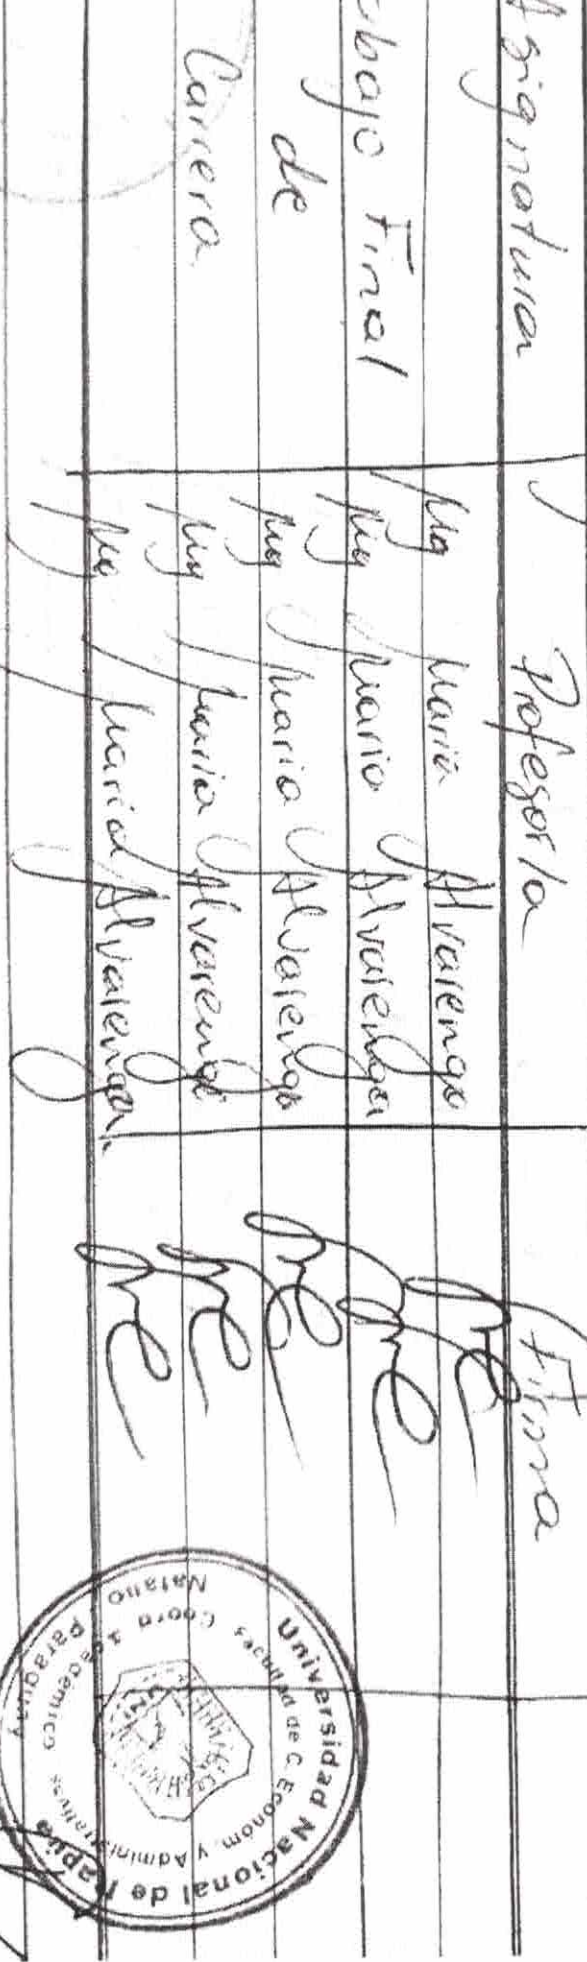 Asignatura Profesor/a Firma
Mg María Alvarenga
bajo Final Mg María Alvarenga
de Mg María Alvarenga
Carrera Mg María Alvarenga
Mg María Alvarenga
Universidad Nacional de Itapúa
Facultad de C. Econom. y Administrativas
Coord Academico
Natalio
Paraguay